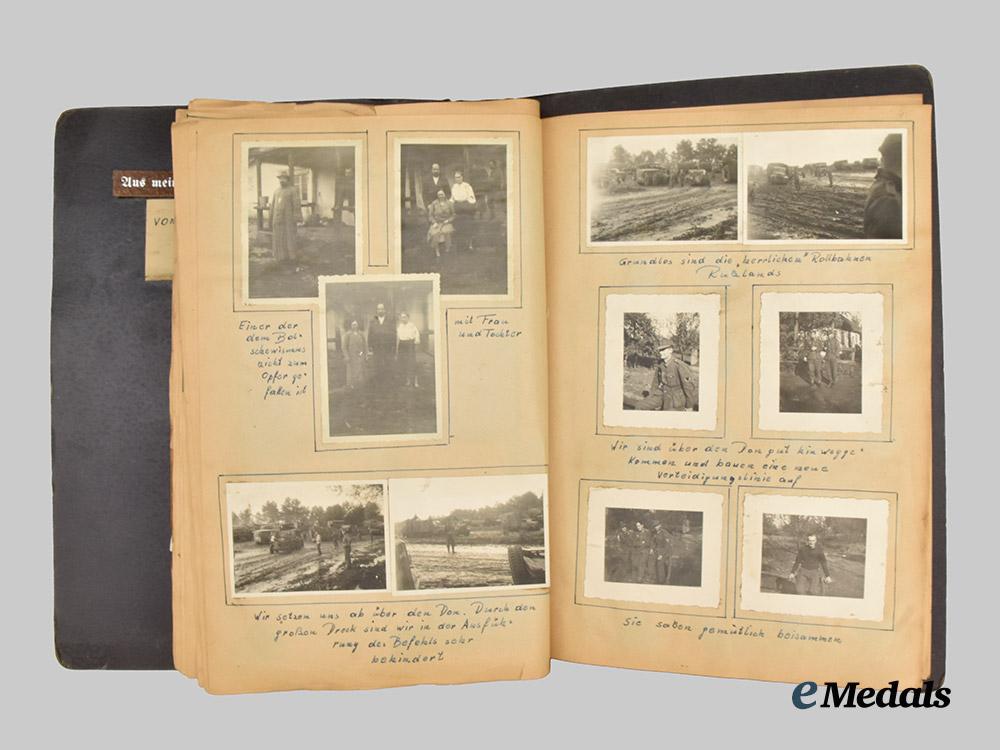 Aus mei
VON
Einer der
dem Bol-
schewismus
nicht zum
Opfer ge-
fallen ist
mit Frau
und Tochter
Wir setzen uns ab über den Don. Durch den
großen Dreck sind wir in der Ausfüh-
rung des Befehls sehr
behindert
Grundlos sind die „herrlichen" Rollbahnen
Rußlands
Wir sind über den Don gut hinwegge-
kommen und bauen eine neue
Verteidigungslinie auf
Sie saßen gemütlich beisammen
eMedals